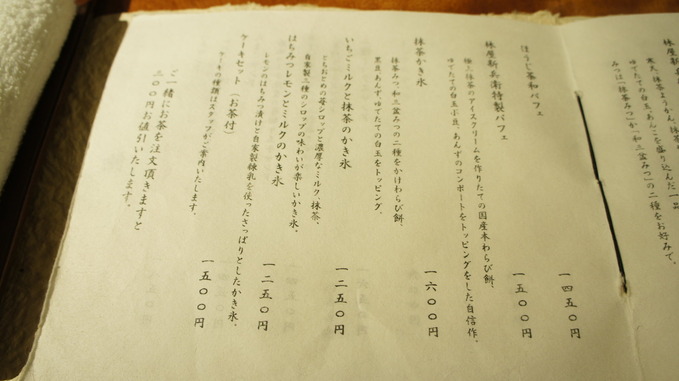 寒天、抹茶ようかん、抹茶
ゆでたての白玉、あんこを盛り込んだ一品
みつは「抹茶みつ」か「和三盆みつ」の二種をお好みで。
ほうじ茶和パフェ
一四五〇円
林屋新兵衛特製パフェ
一五〇〇円
極上抹茶のアイスクリームを作りたての国産本わらび餅、
ゆでたての白玉小豆、あんずのコンポートをトッピングをした自信作。
抹茶かき氷
一六〇〇円
抹茶みつ、和三盆みつの二種をかけわらび餅、
黒豆、あんず、ゆでたての白玉をトッピング。
いちごミルクと抹茶のかき氷
一二五〇円
とちおとめの苺シロップと濃厚なミルク、抹茶、
自家製三種のシロップの味わいが楽しいかき氷。
はちみつレモンとミルクのかき氷
一二五〇円
レモンのはちみつ漬けと自家製練乳を使ったさっぱりとしたかき氷。
ケーキセット（お茶付）
一五〇〇円
ケーキの種類はスタッフがご案内いたします。
ご一緒にお茶を注文頂きますと
三〇〇円お値引いたします。